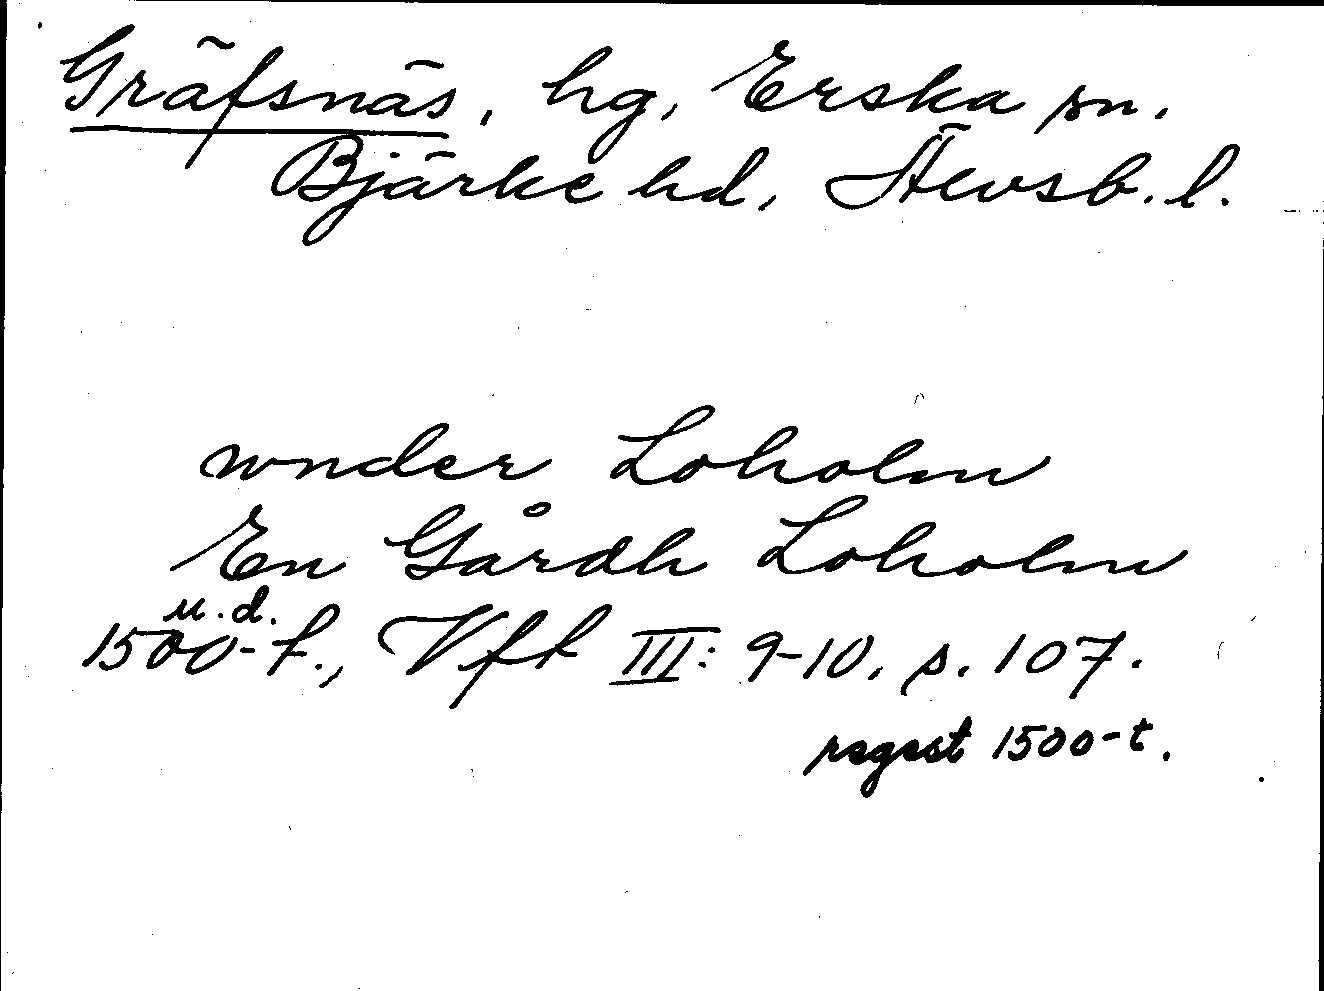 Gräfsnäs, hg, Erska sn.
Bjärke hd, Älvsb. l.
wnder Loholm
En Gårdh Loholm
u.d.
1500-t., Vft III: 9-10. s. 107.
regest 1500-t.